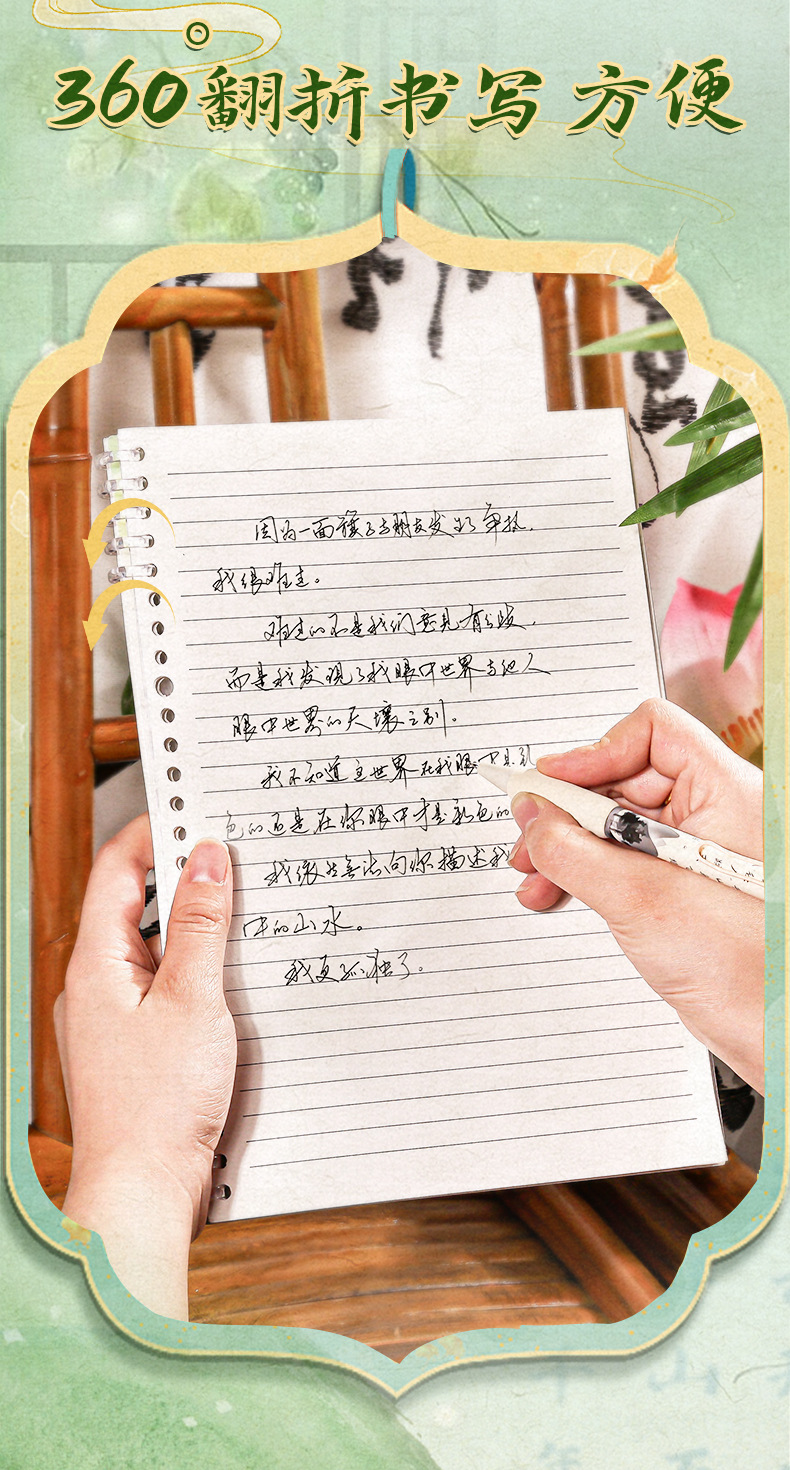 360翻折书写 方便
因为一面旗子与朋友发生了争执，
我很难过。
难过的不是我们意见有分歧，
而是我发现了我眼中世界与他人
眼中世界的天壤之别。
我不知道这世界在我眼中是
色的而是在你眼中才是彩色的
我依然无法向你描述我
中的山水。
我更孤独了。